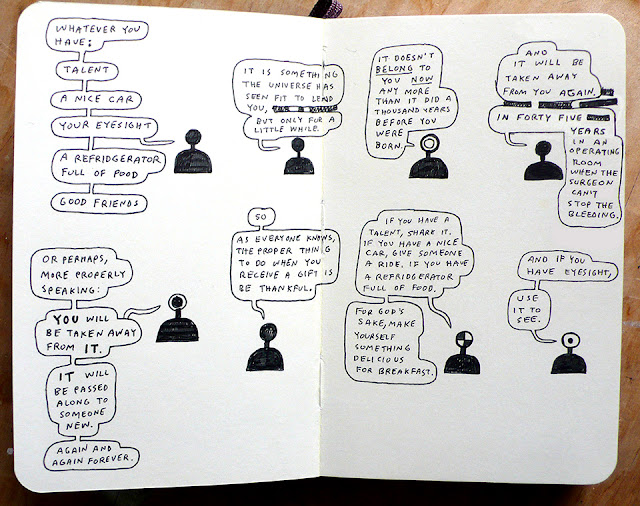 WHATEVER YOU
HAVE:
TALENT
A NICE CAR
YOUR EYESIGHT
A REFRIDGERATOR
FULL OF FOOD
GOOD FRIENDS
IT IS SOMETHING
THE UNIVERSE HAS
SEEN FIT TO LEND
YOU,
BUT ONLY FOR A
LITTLE WHILE.
IT DOESN'T
BELONG TO
YOU NOW
ANY MORE
THAN IT DID A
THOUSAND YEARS
BEFORE YOU
WERE
BORN.
AND
IT WILL BE
TAKEN AWAY
FROM YOU AGAIN.
IN FORTY FIVE
YEARS
IN AN
OPERATING
ROOM
WHEN THE
SURGEON
CAN'T
STOP THE
BLEEDING.
OR PERHAPS,
MORE PROPERLY
SPEAKING:
YOU WILL
BE TAKEN AWAY
FROM IT.
IT WILL
BE PASSED
ALONG TO
SOMEONE
NEW.
AGAIN AND
AGAIN FOREVER.
SO
AS EVERYONE KNOWS,
THE PROPER THING
TO DO WHEN YOU
RECEIVE A GIFT IS
BE THANKFUL.
IF YOU HAVE A
TALENT, SHARE IT.
IF YOU HAVE A NICE
CAR, GIVE SOMEONE
A RIDE. IF YOU HAVE
A REFRIDGERATOR
FULL OF FOOD.
FOR GOD'S
SAKE, MAKE
YOURSELF
SOMETHING
DELICIOUS
FOR BREAKFAST.
AND IF YOU
HAVE EYESIGHT,
USE
IT TO
SEE.